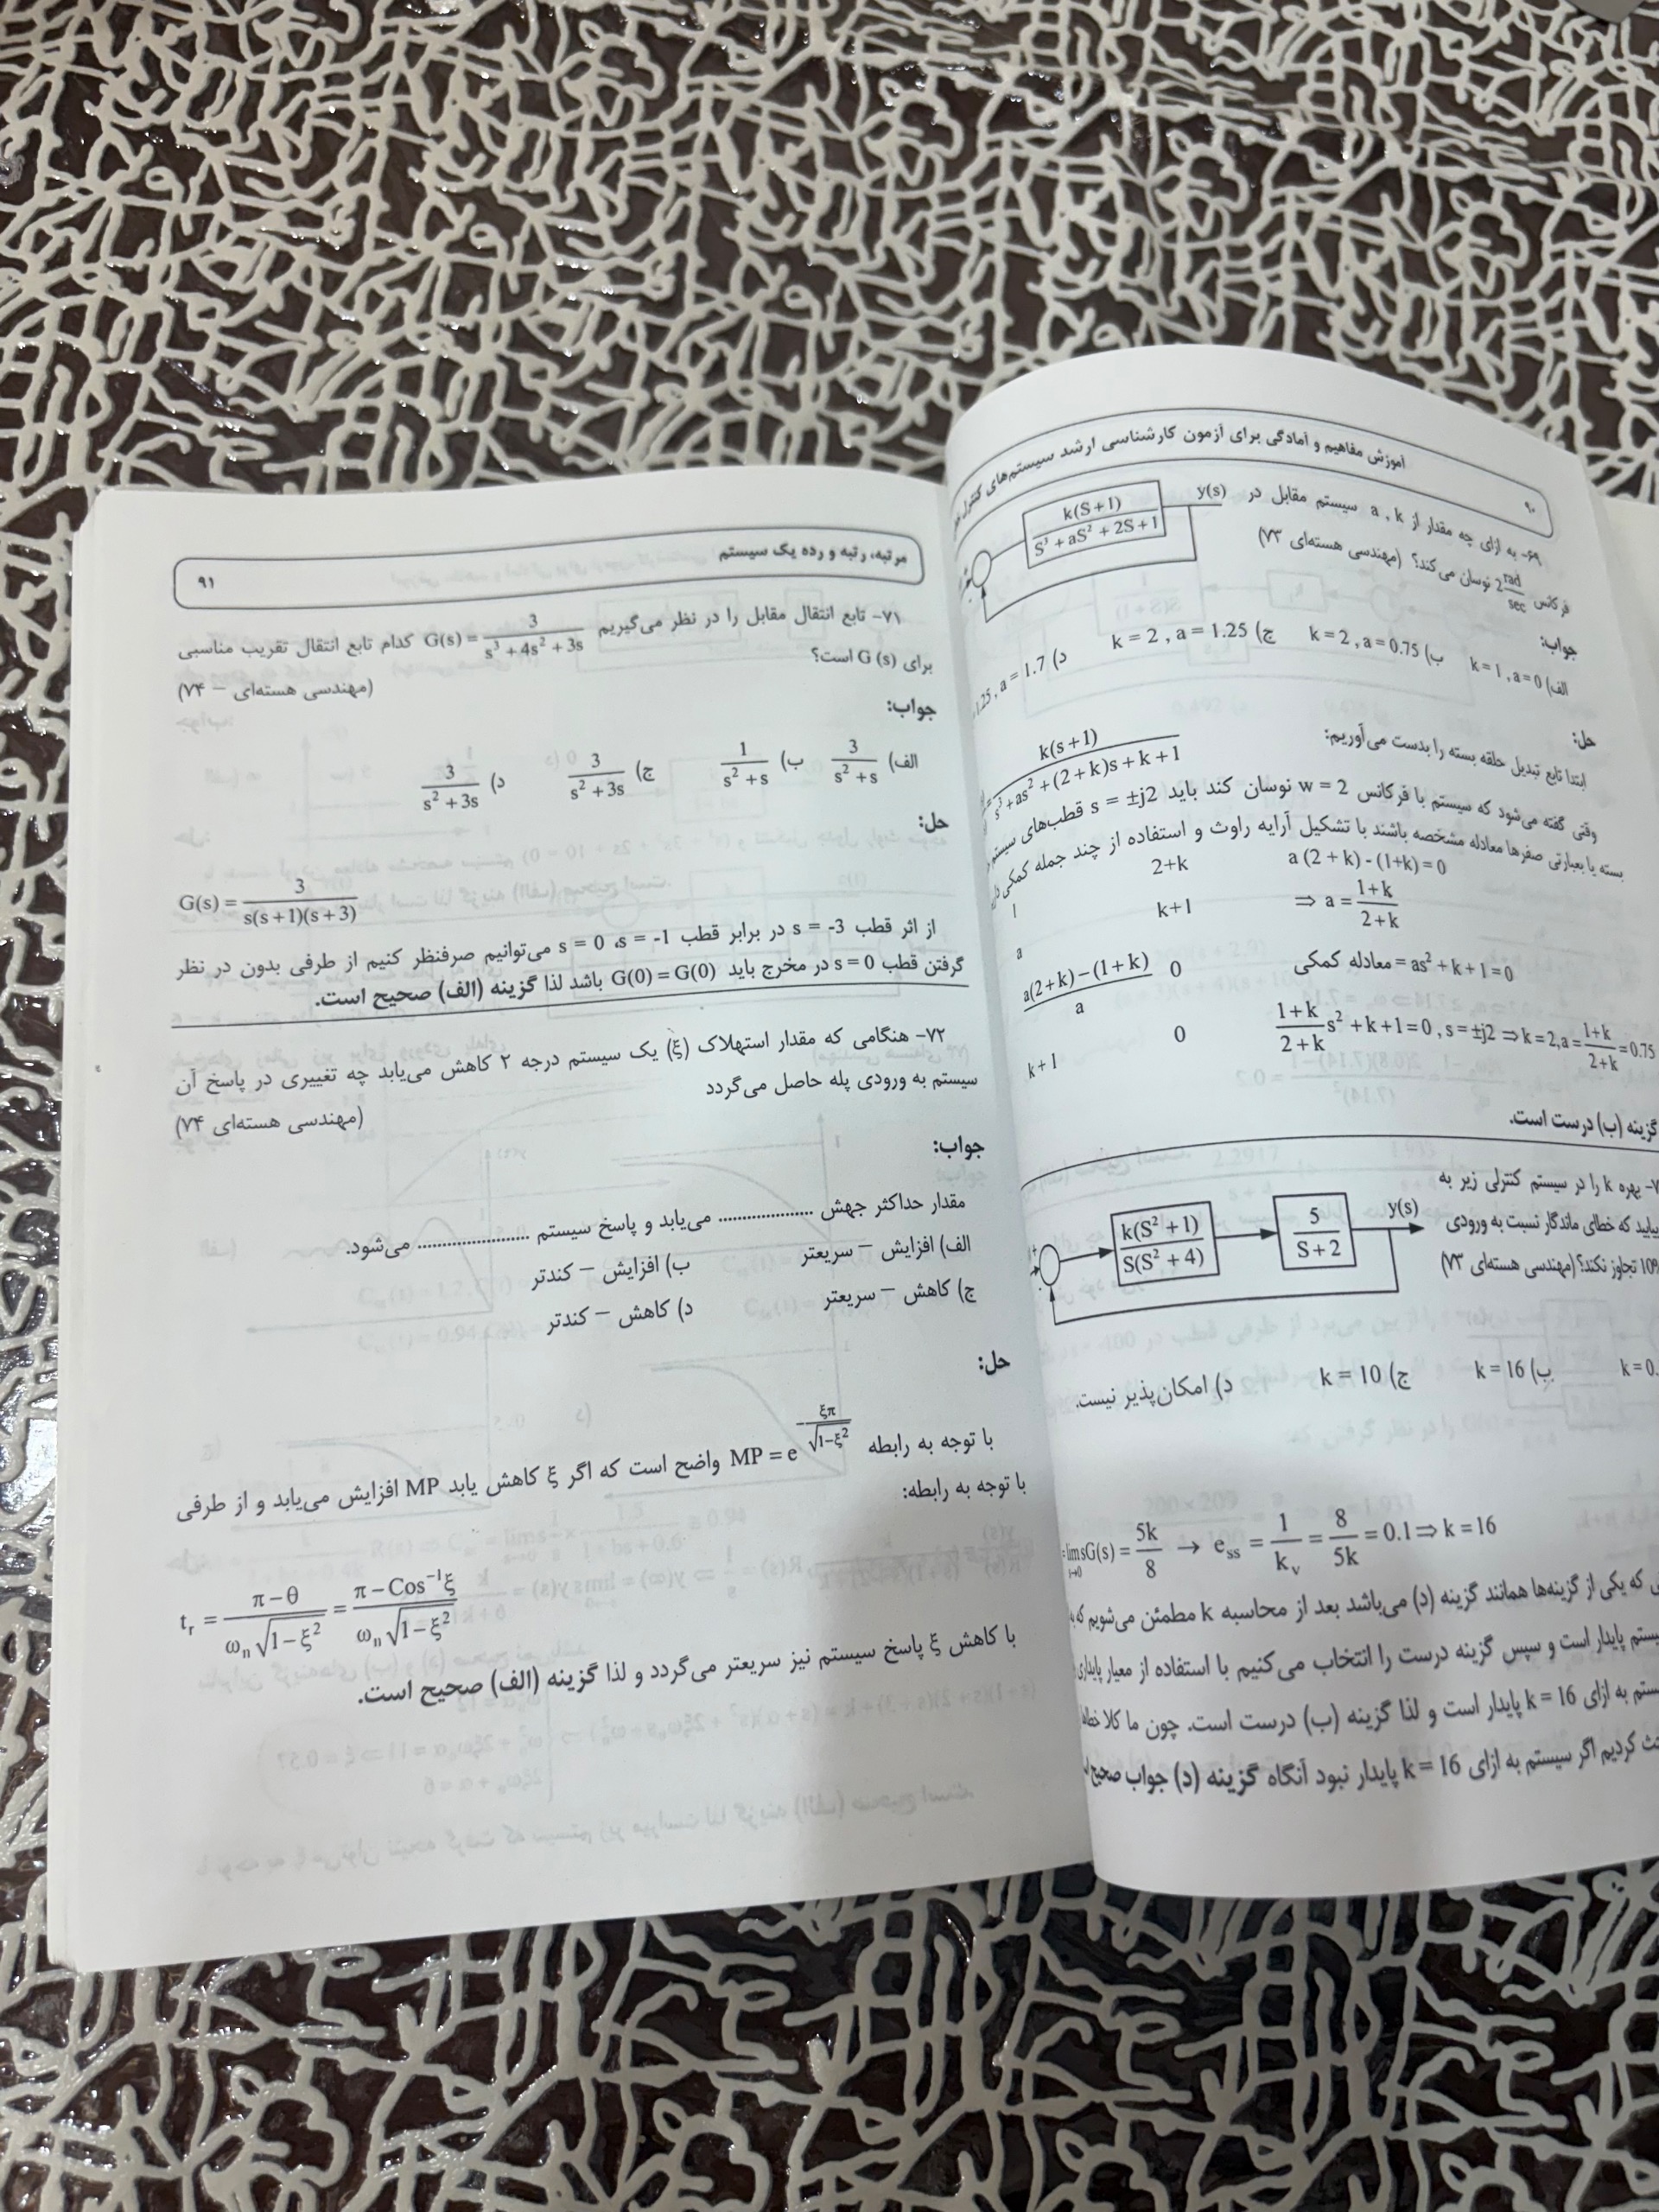 ۹۰ آموزش مفاهیم و آمادگی برای آزمون کارشناسی ارشد سیستم‌های کنترل
۶۹- به ازای چه مقدار از a , k سیستم مقابل در
فرکانس 2 rad/sec نوسان می‌کند؟ (مهندسی هسته‌ای ۷۳)
k(S+1) / S³ + aS² + 2S + 1
y(s)
جواب:
الف) k = 1 , a = 0 ب) k = 2 , a = 0.75 ج) k = 2 , a = 1.25 د) 1.25 , a = 1.7
حل:
ابتدا تابع تبدیل حلقه بسته را بدست می‌آوریم:
k(s+1) / s³ + as² + (2+k)s + k + 1
وقتی گفته می‌شود که سیستم با فرکانس w = 2 نوسان کند باید s = ±j2 قطب‌های سیستم
بسته یا بعبارتی صفرها معادله مشخصه باشند با تشکیل آرایه راوث و استفاده از چند جمله کمکی
1 2+k a (2 + k) - (1+k) = 0
a k+1 ⇒ a = 1+k / 2+k
a(2+k)−(1+k) / a 0 معادله کمکی = as² + k + 1 = 0
k+1 0 1+k / 2+k s² + k + 1 = 0 , s = ±j2 ⇒ k = 2, a = 1+k / 2+k = 0.75
گزینه (ب) درست است.
بهره k را در سیستم کنترلی زیر به
بیابید که خطای ماندگار نسبت به ورودی
10% تجاوز نکند؟ (مهندسی هسته‌ای ۷۳)
+ k(S² + 1) / S(S² + 4) 5 / S+2 y(s)
k = 0. ب) k = 16 ج) k = 10 د) امکان‌پذیر نیست.
= lim sG(s) = 5k / 8 → e_ss = 1 / k_v = 8 / 5k = 0.1 ⇒ k = 16
که یکی از گزینه‌ها همانند گزینه (د) می‌باشد بعد از محاسبه k مطمئن می‌شویم که
سیستم پایدار است و سپس گزینه درست را انتخاب می‌کنیم با استفاده از معیار پایداری
به ازای k = 16 پایدار است و لذا گزینه (ب) درست است. چون ما کلا
کردیم اگر سیستم به ازای k = 16 پایدار نبود آنگاه گزینه (د) جواب صحیح
مرتبه، رتبه و رده یک سیستم ۹۱
۷۱- تابع انتقال مقابل را در نظر می‌گیریم G(s) = 3 / s³ + 4s² + 3s کدام تابع انتقال تقریب مناسبی
برای G (s) است؟
(مهندسی هسته‌ای – ۷۴)
جواب:
الف) 3 / s² + s ب) 1 / s² + s ج) 3 / s² + 3s د) 3 / s² + 3s
حل:
G(s) = 3 / s(s+1)(s+3)
از اثر قطب s = -3 در برابر قطب s = 0 ،s = -1 می‌توانیم صرفنظر کنیم از طرفی بدون در نظر
گرفتن قطب s = 0 در مخرج باید G(0) = G(0) باشد لذا گزینه (الف) صحیح است.
۷۲- هنگامی که مقدار استهلاک (ξ) یک سیستم درجه ۲ کاهش می‌یابد چه تغییری در پاسخ آن
سیستم به ورودی پله حاصل می‌گردد
(مهندسی هسته‌ای ۷۴)
جواب:
مقدار حداکثر جهش .................... می‌یابد و پاسخ سیستم ...................... می‌شود.
الف) افزایش – سریعتر ب) افزایش – کندتر
ج) کاهش – سریعتر د) کاهش – کندتر
حل:
با توجه به رابطه MP = e^(−ξπ / √1−ξ²) واضح است که اگر ξ کاهش یابد MP افزایش می‌یابد و از طرفی
با توجه به رابطه:
t_r = π − θ / ω_n √1−ξ² = π − Cos⁻¹ξ / ω_n √1−ξ²
با کاهش ξ پاسخ سیستم نیز سریعتر می‌گردد و لذا گزینه (الف) صحیح است.